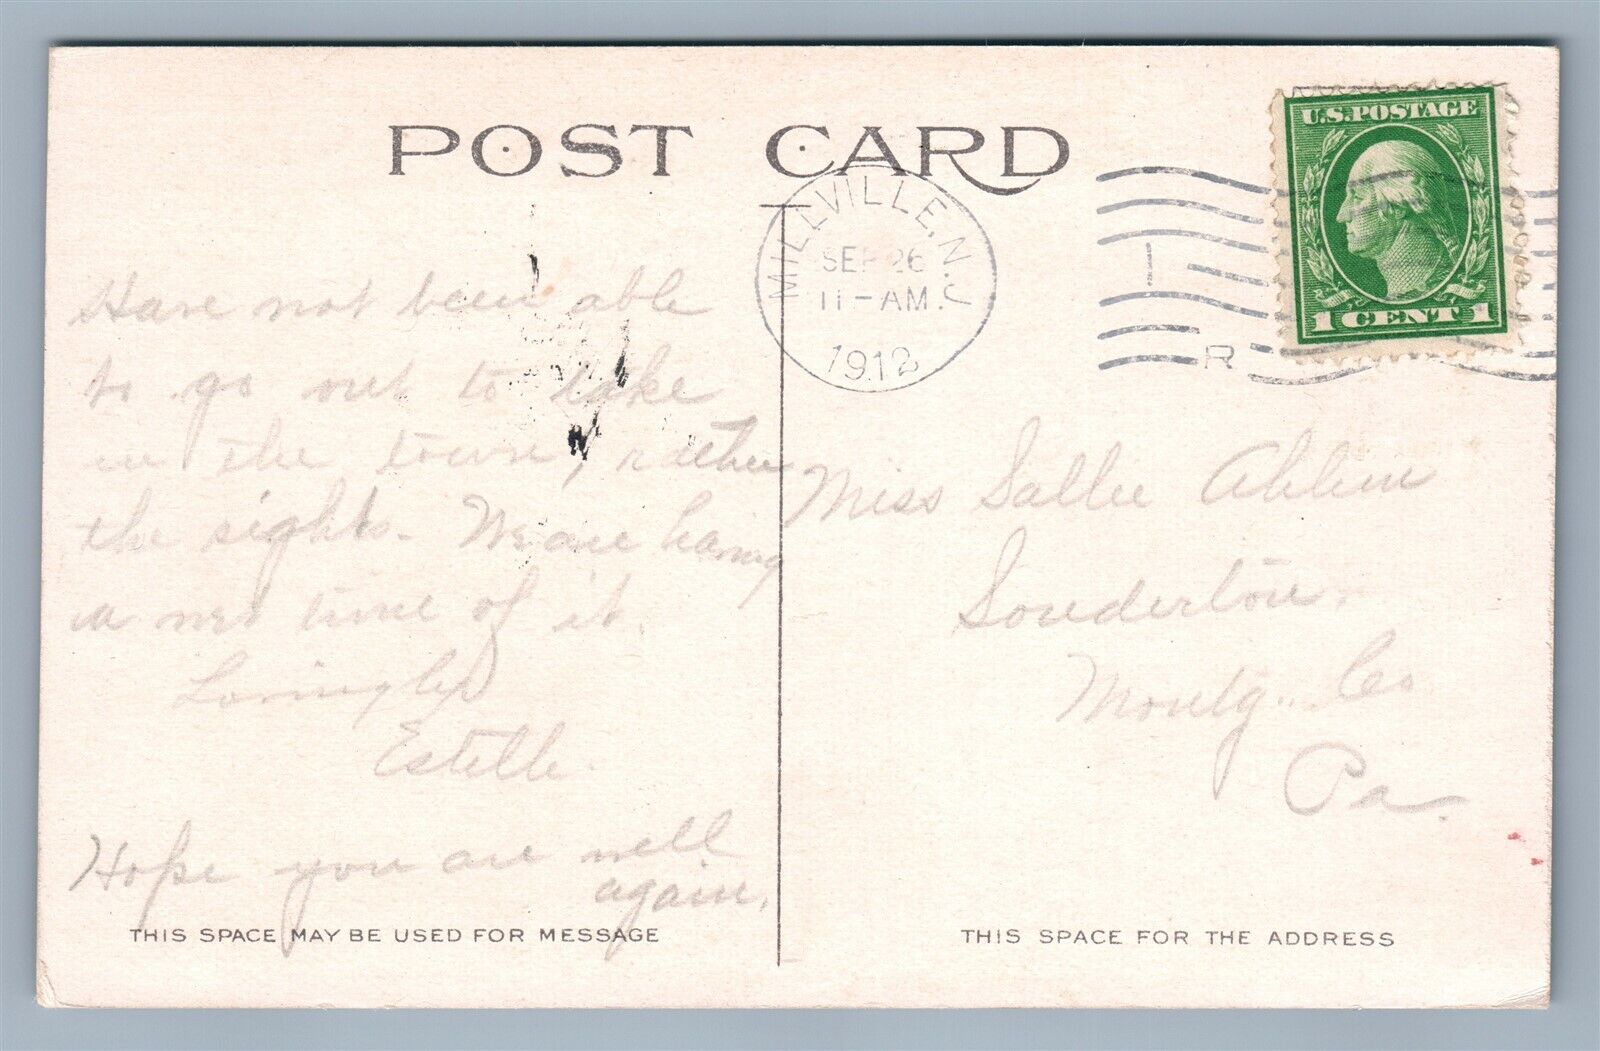 POST CARD
MILLVILLE, N.J.
SEP 26
11-AM.
1912
R
U.S. POSTAGE
1 CENT 1
Have not been able
to go out to take
in the town, rather
the sights. We are having
a wet time of it.
Lovingly
Estelle.
Hope you are well
again.
Miss Sallie
Souderton,
Montg. Co
Pa.
THIS SPACE MAY BE USED FOR MESSAGE
THIS SPACE FOR THE ADDRESS